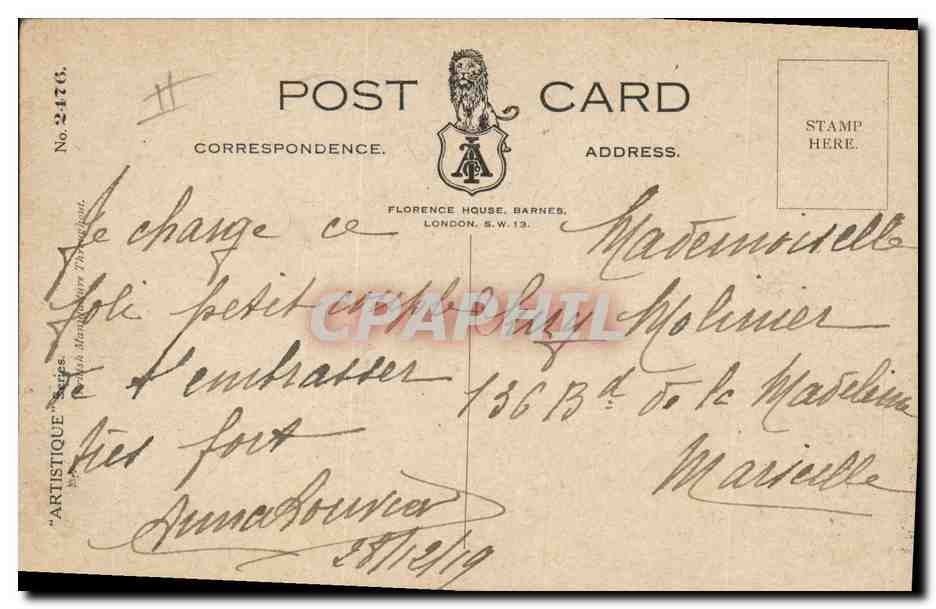 No. 2476.
"ARTISTIQUE" Series.
British Manufacture Throughout.
POST CARD
CORRESPONDENCE.
ADDRESS.
STAMP
HERE.
FLORENCE HOUSE, BARNES,
LONDON, S.W. 13.
Je charge ce
joli petit couple
de t'embrasser
très fort
28/12/19
Mademoiselle
Molinier
136 Bd de la Madeleine
Marseille
CPAPHIL